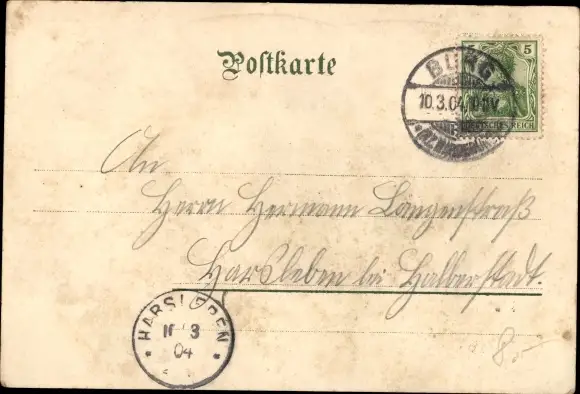 Postkarte
5
BURG
10.3.04
DEUTSCHES REICH
An
Herrn Hermann Langenstraß
Harsleben bei Halberstadt.
HARSLEBEN
11 3
04